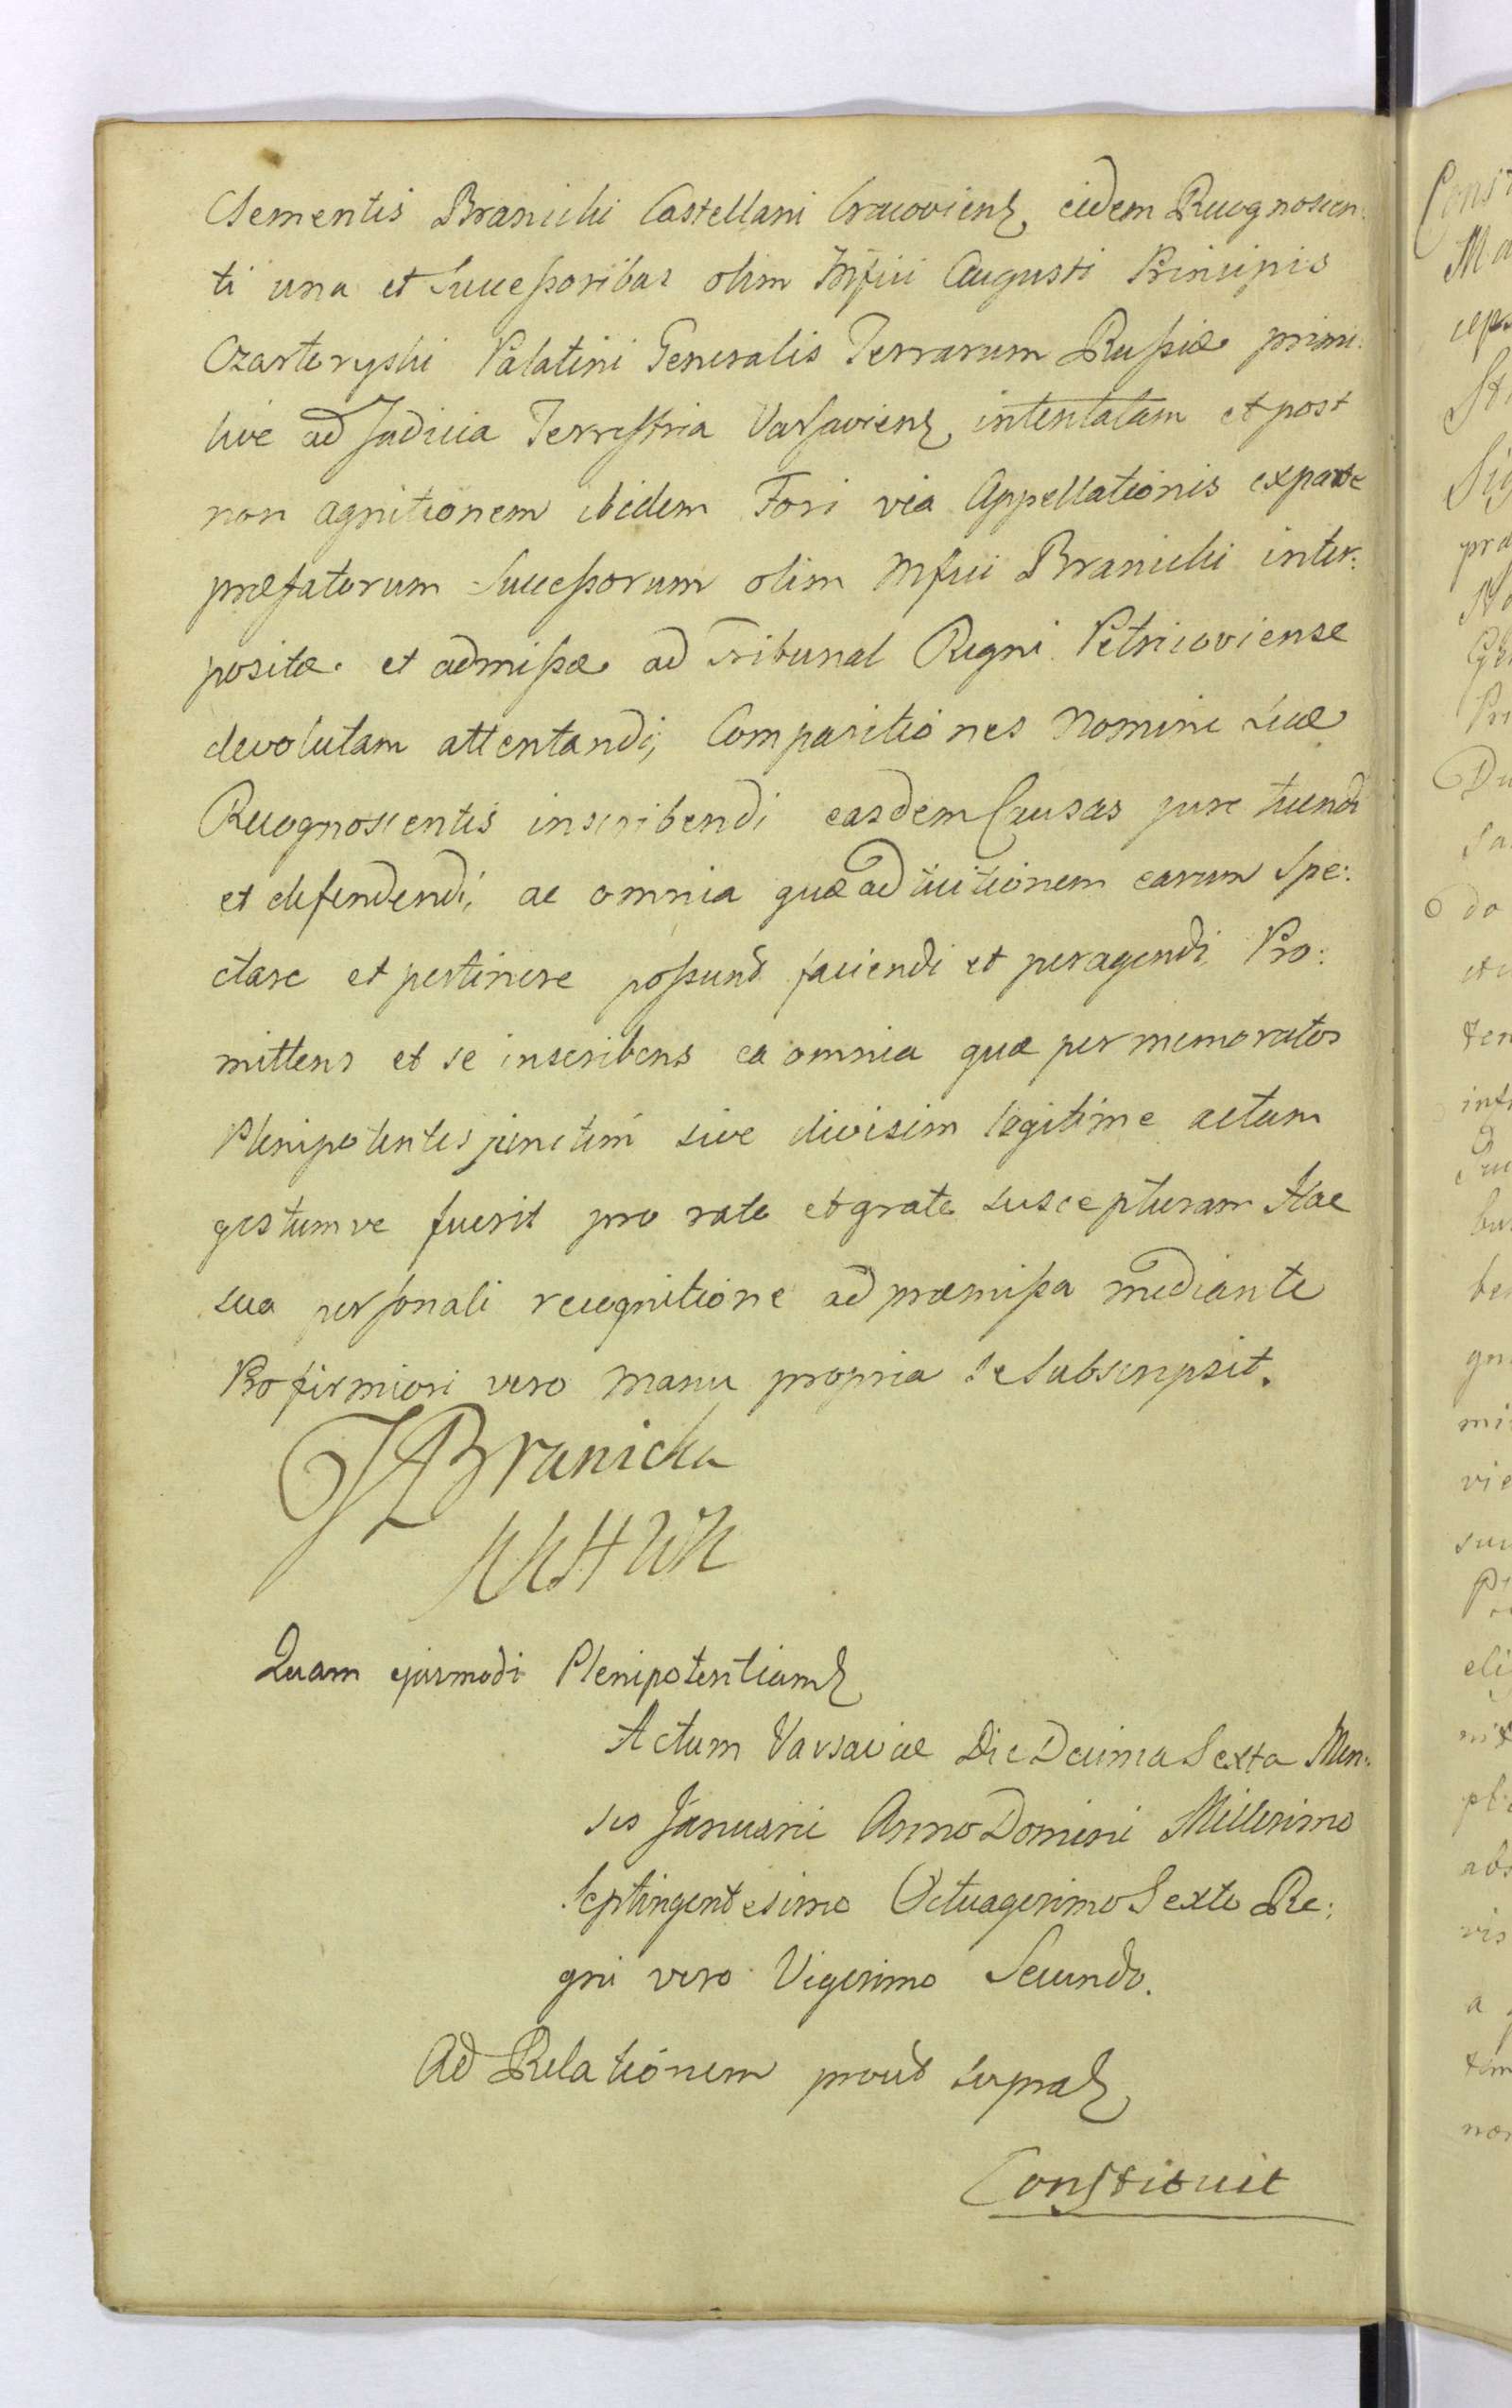 Clementis Branicki Castellani Cracovien͡s eidem Recognoscen:
ti una et Successoribus olim Mfici Augusti Principis
Czartoryski Palatini Generalis Terrarum Russiæ primi:
tive ad Judicia Terrestria Varsavien͡s intentatam et post
non agnitionem ibidem Fori via Appellationis ex parte
præfatorum Successorum olim Mfici Branicki inter:
positæ et admissæ ad Tribunal Regni Petricoviense
devolutam attentandi, Comparitiones Nomine suæ
Recognoscentis inscribendi easdem Causas jure tuendi
et defendendi, ac omnia quæ ad tuitionem earum spe:
ctare et pertinere possunt faciendi et peragendi Pro:
mittens et se inscribens ea omnia quæ per memoratos
Plenipotentes junctim sive divisim legitime actum
gestumve fuerit pro rato et grato suscepturam Hac
sua personali recognitione ad præmissa mediante
Pro firmiori vero manu propria se subscripsit.
Branicka
Quam ejusmodi Plenipotentiam
Actum Varsaviae Die Decima Sexta Men:
sis Januarii Anno Domini Millesimo
Septingentesimo Octuagesimo Sexto Re:
gni vero Vigesimo Secundo.
Ad Relationem prout supra
Constituit